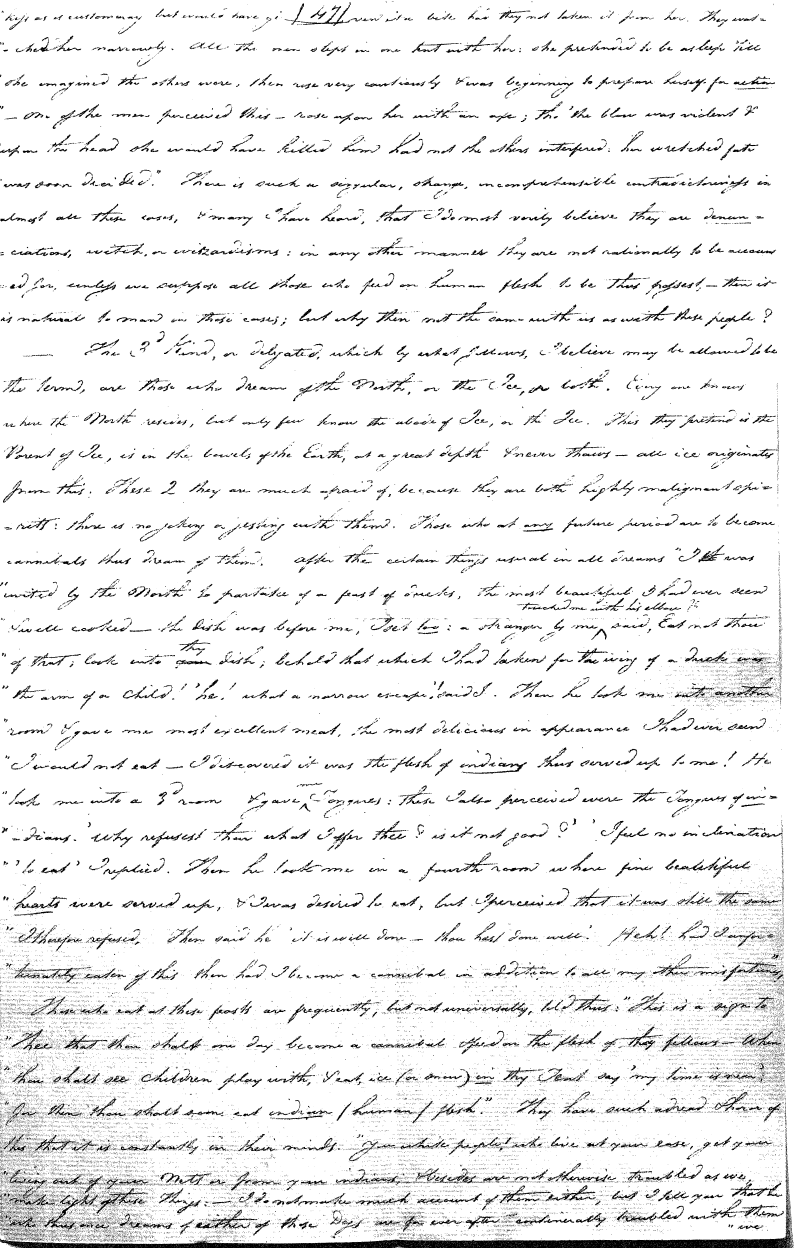 "keys as is customary but would have gi /47/ ven it a bite had they not taken it from her. They wat=
"=ched her narrowly. All the men slept in one tent with her: she pretended to be asleep 'till
"she imagined the others were, then rose very cautiously & was beginning to prepare herself for action
"— one of the men perceived this — rose upon her with an axe; tho' the blow was violent &
upon the head she would have killed him had not the others interfered: her wretched fate
"was soon decided". There is such a singular, strange, incomprehensible contradictoriness in
almost all these cases, & many I have heard, that I do most verily believe they are denun=
=ciations, witch, or wizzardisms: in any other manner they are not rationally to be account
=ed for, unless we suppose all those who feed on human flesh to be thus possest, — then it
is natural to man in those cases; but why then not the same with us as with these people?
— The 3d Kind, or delegated, which by what follows, I believe may be allowed to be
the term, are those who dream of the North, or the Ice, or both. Every one knows
where the North resides, but only few know the abode of Ice, or the Ice. This they pretend is the
Parent of Ice, is in the bowels of the Earth, at a great depth & never thaws — all ice originates
from this. These 2 they are much afraid of, because they are both highly malignant spi=
=rits: there is no joking or jesting with them. Those who at any future period are to become
cannibals thus dream of them. After the certain things usual in all dreams "I was
"invited by the North to partake of a feast of ducks, the most beautiful I had ever seen
touched me with his elbow &
"& well cooked — the Dish was before me, I set too: a stranger by me, said, Eat not thou
thy
"of that; look into dish; behold that which I had taken for the wing of a duck was
"the arm of a Child! 'he! what a narrow escape'! said I. Then he took me into another
"room & gave me most excellent meat, the most delicious in appearance I had ever seen
"I would not eat — I discovered it was the flesh of indians thus served up to me! He
me
"took me into a 3d room & gave Tongues: these I also perceived were the Tongues of in=
"=dians. 'Why refusest thou what I offer thee? is it not good?' 'I feel no inclination
"'to eat' I replied. Then he took me in a fourth room where fine beautiful
"hearts were served up, & I was desired to eat, but I perceived that it was still the same
"I therefore refused. Then said he 'it is well done — thou hast done well'. Heh! had I unfor=
"tunately eaten of this then had I become a cannibal in addition to all my other misfortunes"
Those who eat at these feasts are frequently, but not universally, told thus: "This is a sign to
"thee that thou shalt one day become a cannibal & feed on the flesh of thy fellows — When
"thou shalt see Children play with, & eat, ice (or snow) in thy Tent say 'my time is near'
"for then thou shalt soon eat indian / human / flesh". They have such a dread & horror of
this that it is constantly in their minds. "You white people! who live at your ease, get your
"living out of your Nets or from your indians, & besides are not otherwise troubled as we,
"make light of these things: — I do not make much account of them either, but I tell you that he
who thus once dreams of either of those Days are for ever after continually troubled with them
"we